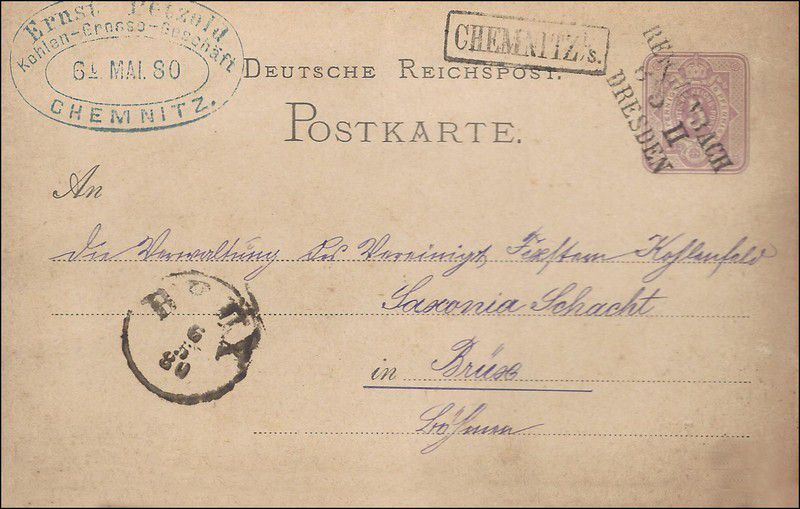 Ernst Petzold
Kohlen-Grosso-Geschäft
6. MAI. 80
CHEMNITZ.
CHEMNITZ i/s.
DEUTSCHE REICHSPOST.
POSTKARTE.
REICHENBACH
6 5 II
DRESDEN
An
die Verwaltung des Vereinigt Kohlenfeld
Saxonia Schacht
in Brüx
Böhmen
BRÜX
6
5
80